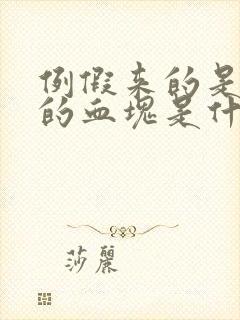 例假来的是
的血块是什
莎麗